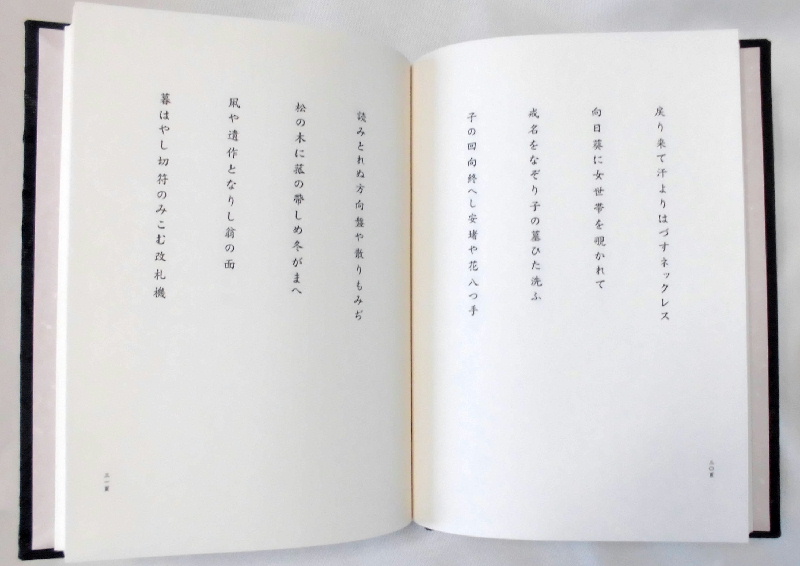 戻り来て汗よりはづすネックレス
向日葵に女世帯を覗かれて
戒名をなぞり子の墓ひた洗ふ
子の回向終へし安堵や花八つ手
読みとれぬ方向盤や散りもみぢ
松の木に菰の帯しめ冬がまへ
凩や遺作となりし翁の面
暮はやし切符のみこむ改札機